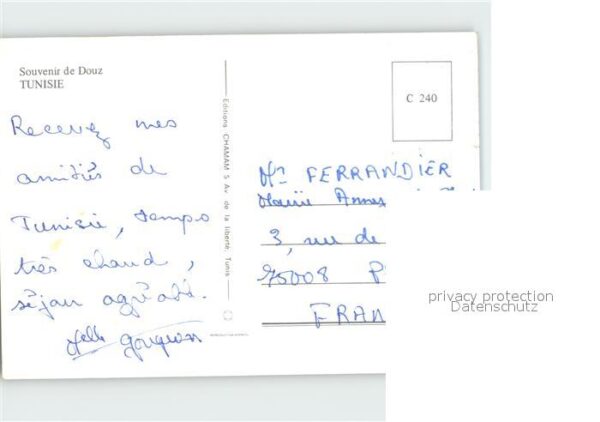 Souvenir de Douz
TUNISIE
C 240
Recevez mes
amitiés de
Tunisie, temps
très chaud,
séjour agréabl.
Editions CHAMAM 5 Av. de la liberté, Tunis
FERRANDIER
Mairie Annexe
3, rue de
75008 P
FRAN
privacy protection
Datenschutz